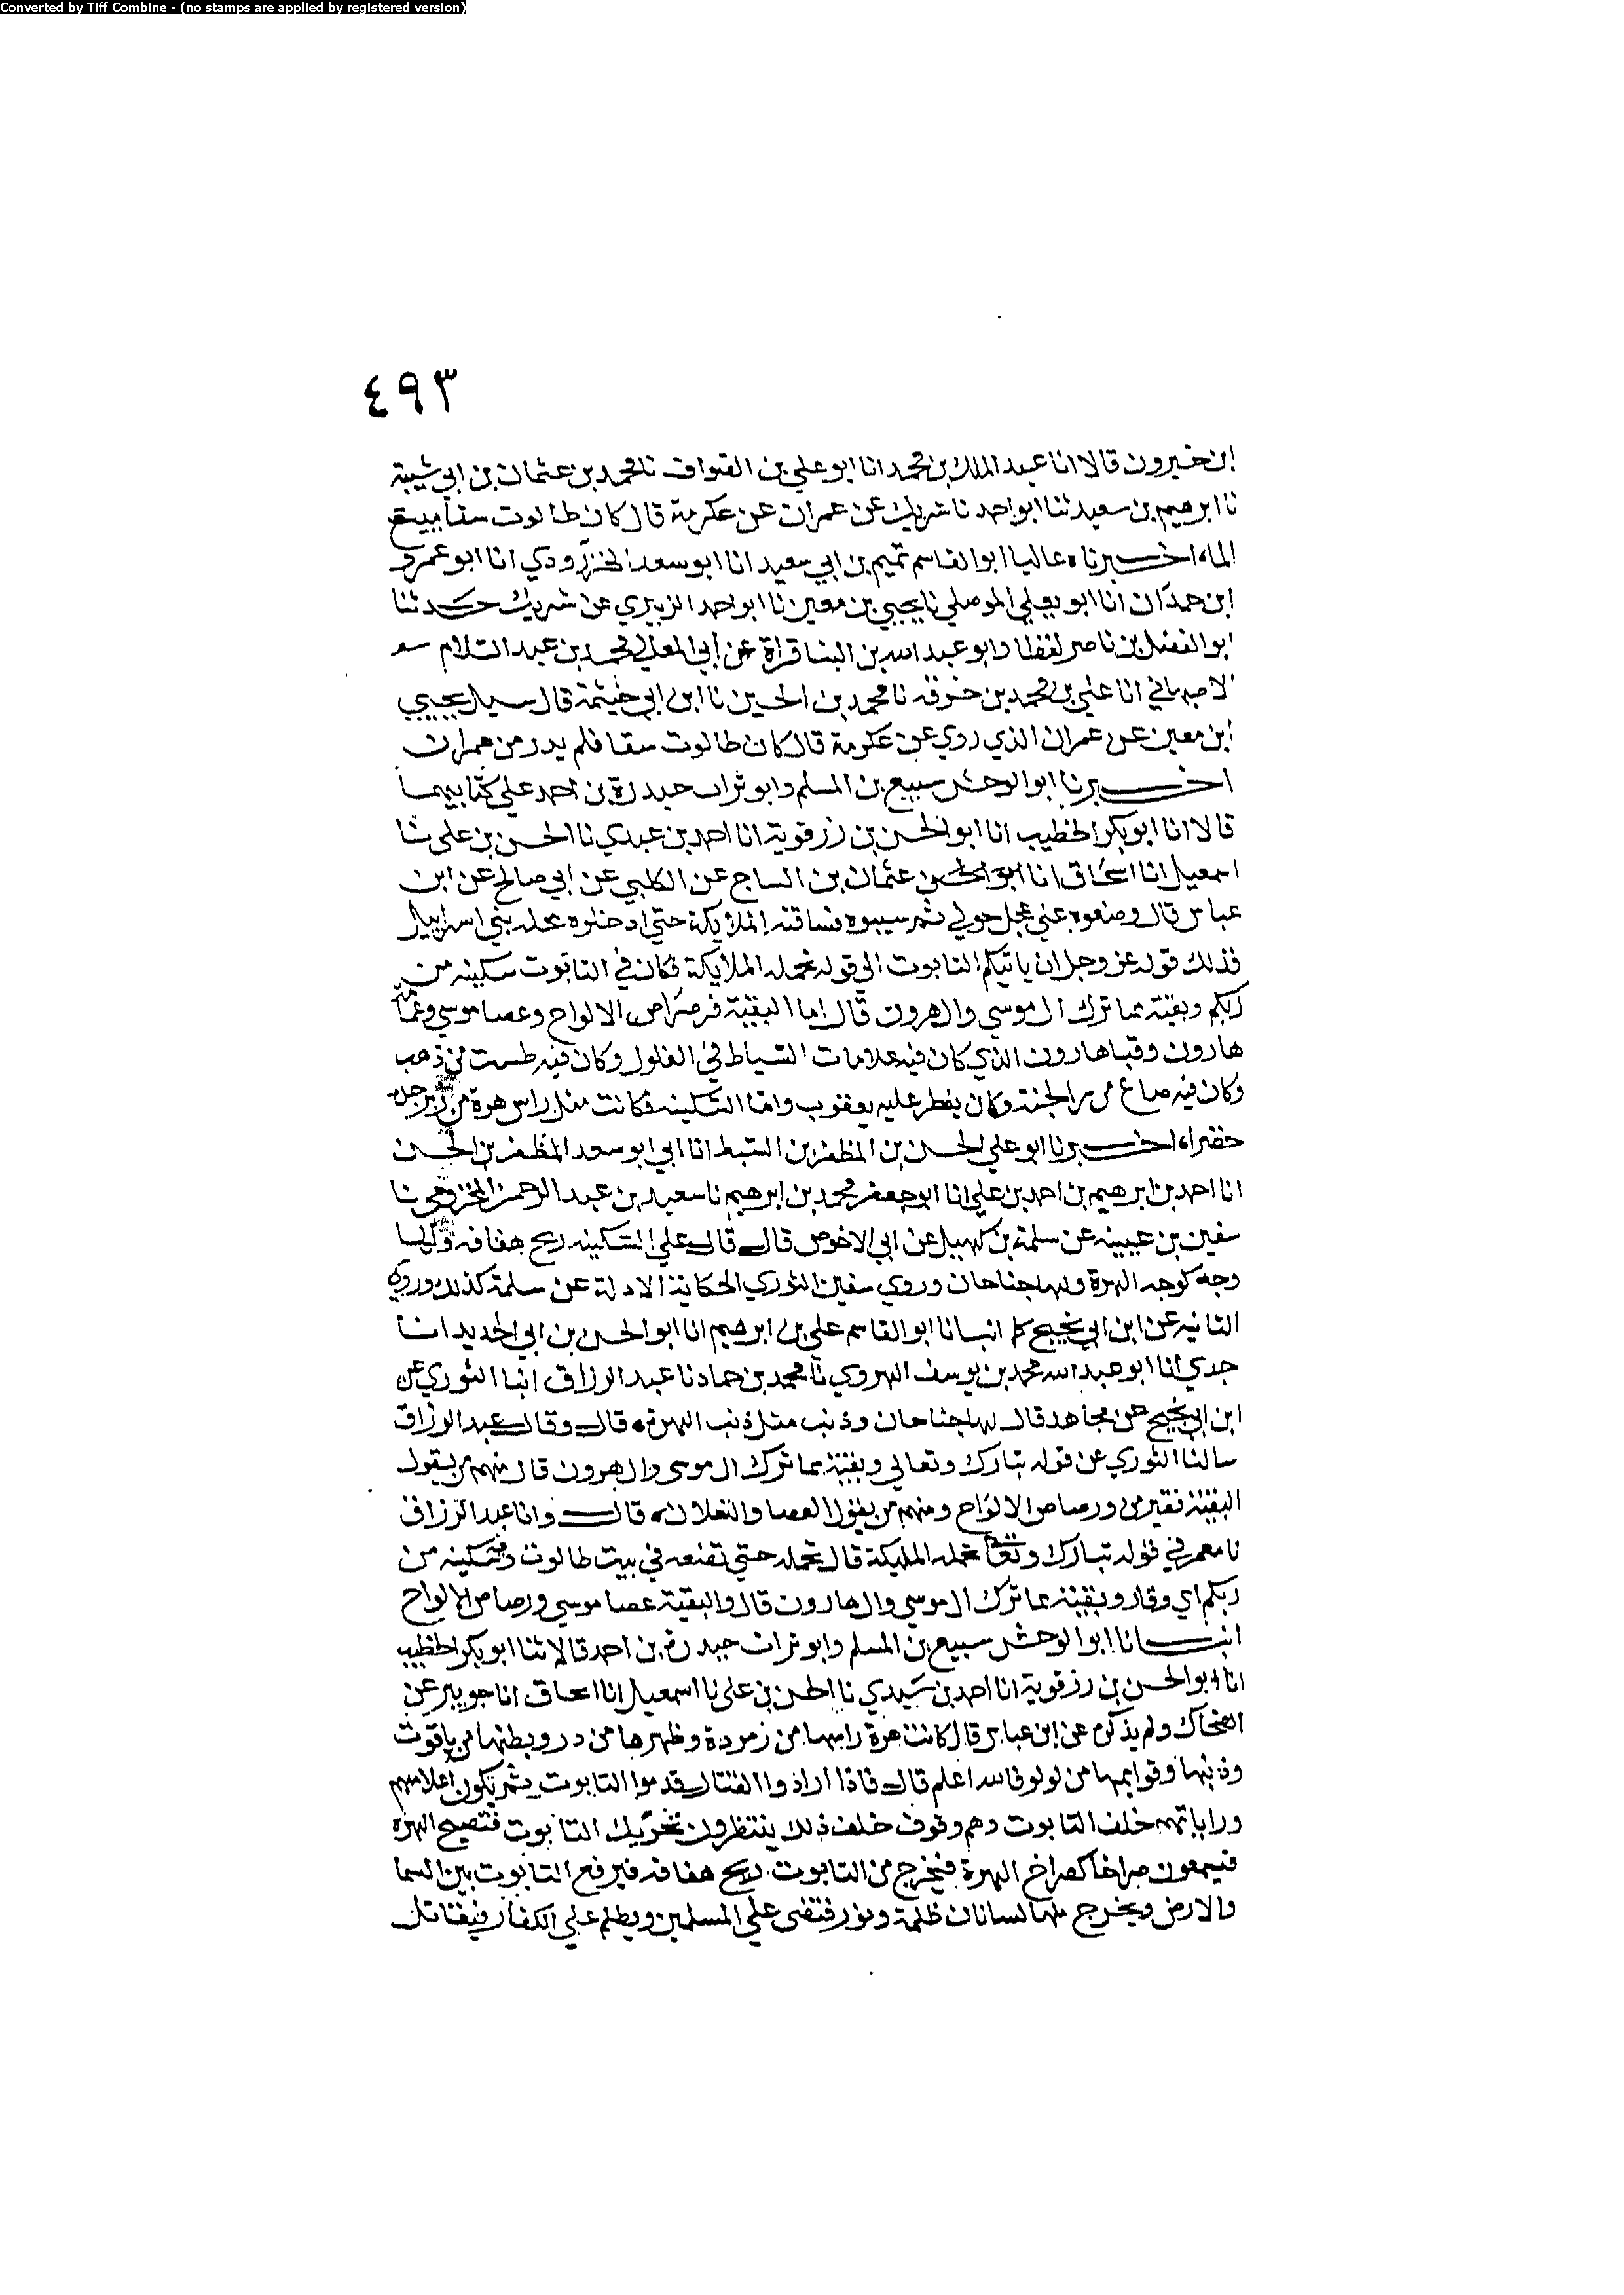 Converted by Tiff Combine - (no stamps are applied by registered version)
٤٩٣
ابن خيرون قالا انا عبد الملك بن محمد انا ابو علي بن الصواف نا محمد بن عثمان بن ابي شيبة
نا ابرهيم بن سعيد ثنا ابو احمد نا شريك عن عمران عن عكرمة قال كان طالوت سقا يبيع
الماء اخبرناه عاليا ابو القاسم تميم بن ابي سعيد انا ابو سعد الخنزرودي انا ابو عمرو
ابن حمدان انا ابو يعلي الموصلي نا يحيي بن معين نا ابو احمد الزبيري عن شريك حدثنا
ابو الفضل بن ناصر لفظا وابو عبد الله بن البنا قراة عن ابي المعالي محمد بن عبد السلام
الاصبهاني انا علي بن محمد بن خزفه نا محمد بن الحسين نا ابن ابي خيثمة قال سيل يحيي
ابن معين عن عمران الذي روي عن عكرمة قال كان طالوت سقا فلم يدر من عمران
اخبرنا ابو الوحش سبيع بن المسلم وابو تراب حيدرة بن احمد علي كتابيهما
قالا انا ابو بكر الخطيب انا ابو الحسن بن رزقوية انا احمد بن عبدي نا الحسن بن علي نا
اسمعيل انا اسحاق انا ابو الحسن عثمان بن الساج عن الكلبي عن ابي صالح عن ابن
عباس قال وضعوه علي عجل حولي ثم سيبوه فساقته الملايكة حتي ادخلوه محله بني اسراييل
فذلك قوله عز وجل ان ياتيكم التابوت الي قوله تحمله الملايكة فكان في التابوت سكينه من
ربكم وبقية مما ترك ال موسي وال هرون قال اما البقية فرضراض الالواح وعصا موسي وعمامة
هارون وقبا هارون الذي كان فيه علامات السباط في الغلول وكان فيه طست من ذهب
وكان فيه صاع من بر الجنة وكان يفطر عليه يعقوب واما السكينه فكانت مثل راس هرة من زبرجده
خضراء اخبرنا ابو علي الحسن بن المظفر بن السبط انا ابي ابو سعد المظفر بن الحسن
انا احمد بن ابرهيم بن احمد بن علي انا ابو جعفر محمد بن ابرهيم نا سعيد بن عبد الرحمن المخزومي نا
سفين بن عيينه عن سلمة بن كهيل عن ابي الاحوص قال قال علي السكينه ريح هفافه ولها
وجه كوجه الهرة ولها جناحان وروي سفين الثوري الحكاية الاولة عن سلمة كذلك وروي
الثانيه عن ابن ابي نجيح كما انبانا ابو القاسم علي بن ابرهيم انا ابو الحسن بن ابي الحديد انا
جدي انا ابو عبد الله محمد بن يوسف الهروي نا محمد بن حماد نا عبد الرزاق انبا الثوري عن
ابن ابي نجيح عن مجاهد قال لها جناحان وذنب مثل ذنب الهرة قال وقال عبد الرزاق
سالنا الثوري عن قوله تبارك وتعالي وبقية مما ترك ال موسي وال هرون قال منهم من يقول
البقية قفيز من ورضاض الالواح ومنهم من يقول العصا والنعلان قال وانا عبد الرزاق
نا معمر في قوله تبارك وتعالي تحمله المليكة قال تحمله حتي تضعه في بيت طالوت فيه سكينه من
ربكم اي وقار وبقية مما ترك ال موسي وال هارون قال والبقية عصا موسي ورضاض الالواح
انبانا ابو الوحش سبيع بن المسلم وابو تراب حيدرة بن احمد قالا ثنا ابو بكر الخطيب
انا ابو الحسن بن رزقوية انا احمد بن سيدي نا الحسن بن علي نا اسمعيل انا اسحاق انا جويبر عن
الضحاك ولم يذكره عن ابن عباس قال كانت هرة راسها من زمردة وظهرها من در وبطنها من ياقوت
وذنبها وقوايمها من لولو فالله اعلم قال فاذا ارادوا القتال قدموا التابوت ثم تكون اعلامهم
وراياتهم خلف التابوت وهم وقوف خلف ذلك ينتظرون تحريك التابوت فتصيح الهرة
فيسمعون صراخا كصراخ الهرة فيخرج من التابوت ريح هفافه فيرفع التابوت بين السما
والارض ويخرج منها لسانان ظلمة ونور فتضي علي المسلمين ويظلم علي الكفار فيقاتل